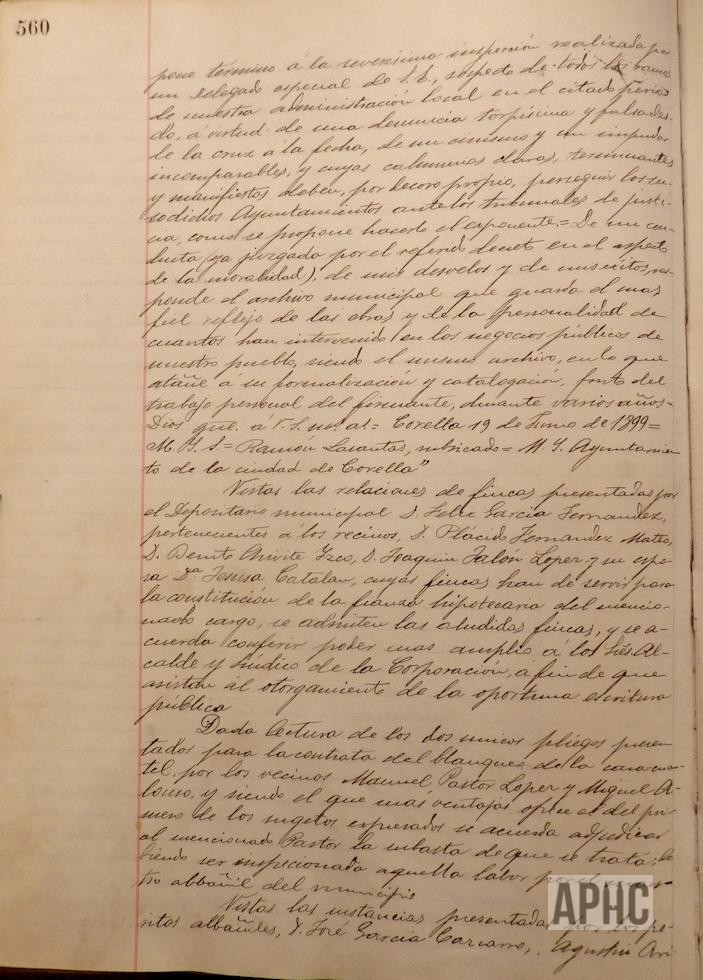 560
pone término á la severísima inspección realizada por
un Delegado especial de S. E., respecto de todos los ramos
de nuestra administración local en el citado perío
do, á virtud de una denuncia torpísima y falsa des-
de la cruz á la fecha, de un cinismo y un impudor
incomparables, y cuyas calumnias claras, terminantes
y manifiestas deben, por decoro propio, perseguir los su-
sodichos Ayuntamientos ante los tribunales de justi-
cia, como se propone hacerlo el exponente.= De mi con-
ducta (ya juzgada por el referido decreto en el aspecto
de la moralidad), de mis desvelos y de mis éxitos, res-
ponde el archivo municipal que guarda el mas
fiel reflejo de las obras y de la personalidad de
cuantos han intervenido en los negocios públicos de
nuestro pueblo, siendo el mismo archivo, en lo que
atañe á su formalización y catalogación, fruto del
trabajo personal del firmante, durante varios años-
Dios gue. á V. S. ms. as.= Corella 19 de Junio de 1899=
M. Y. S.= Ramón Lasantas, rubricado= M. Y. Ayuntamien
to de la ciudad de Corella"
Vistas las relaciones de fincas presentadas por
el Depositario municipal D. Felix García Fernandez,
pertenecientes á los vecinos, D. Plácido Fernandez Mateo,
D. Benito Chivite Yzco, D. Joaquin Jalón Lopez y su espo-
sa Dª Teresa Catalan, cuyas fincas han de servir para
la constitución de la fianza hipotecaria del mencio-
nado cargo, se admiten las aludidas fincas, y se a-
cuerda conferir poder mas amplio a los Sres. Al-
calde y Síndico de la Corporación, á fin de que
asistan al otorgamiento de la oportuna escritura
pública
Dada lectura de los dos unicos pliegos presen
tados para la contrata del blanqueo de la casa-cuar-
tel, por los vecinos Manuel Pastor Lopez y Miguel A-
lonso, y siendo el que mas ventajas ofrece el del pri
mero de los sugetos expresados se acuerda adjudicar
al mencionado Pastor la subasta de que se trata; de
biendo ser inspecionada aquella labor por el maes-
tro albañil del municipio
Vistas las instancias presentadas por los pe-
ritos albañiles, D. José García Carcano, Agustin Ari
APHC